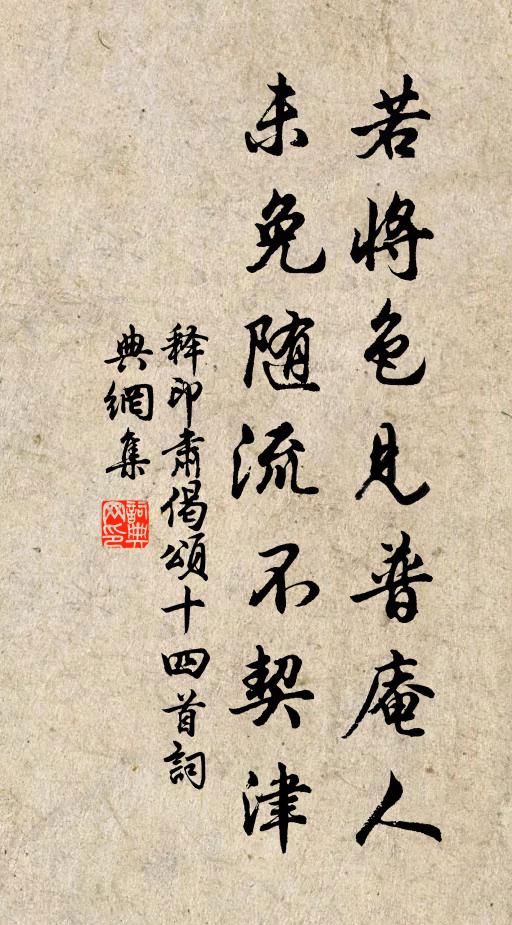 若将色见普庵人
未免随流不契津
释印肃偈颂十四首詞
典網集
詞典
网印